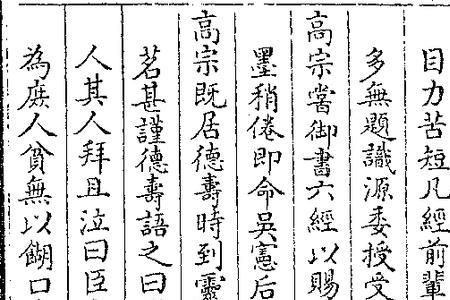 目力苦短凡經前輩
多無題識源委授受
高宗嘗御書六經以賜
墨稍倦即命吳憲后
高宗既居德壽時到靈
茗甚謹德壽語之曰
人其人拜且泣曰臣
為庶人貧無以餬口